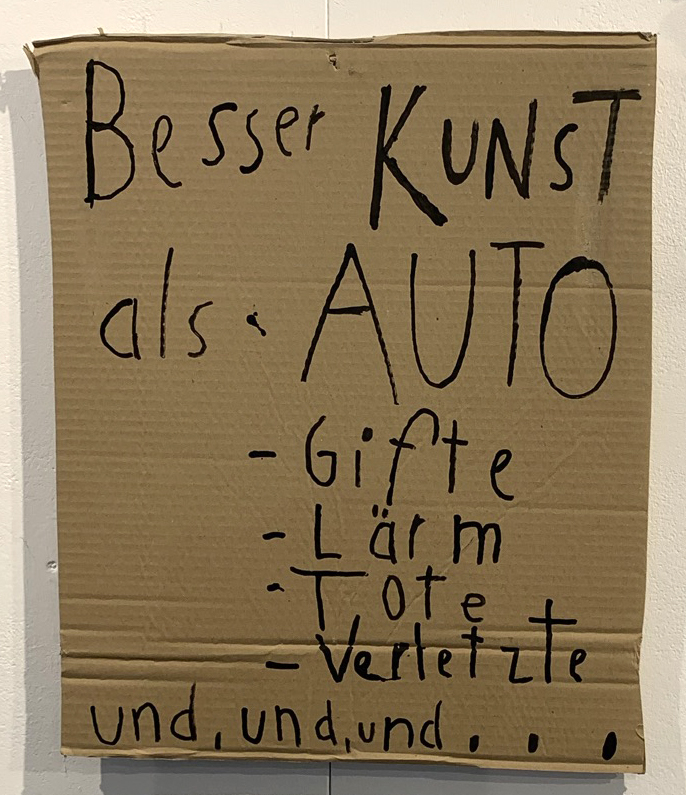 Besser KUNST
als · AUTO
- Gifte
- Lärm
- Tote
- Verletzte
und, und, und...